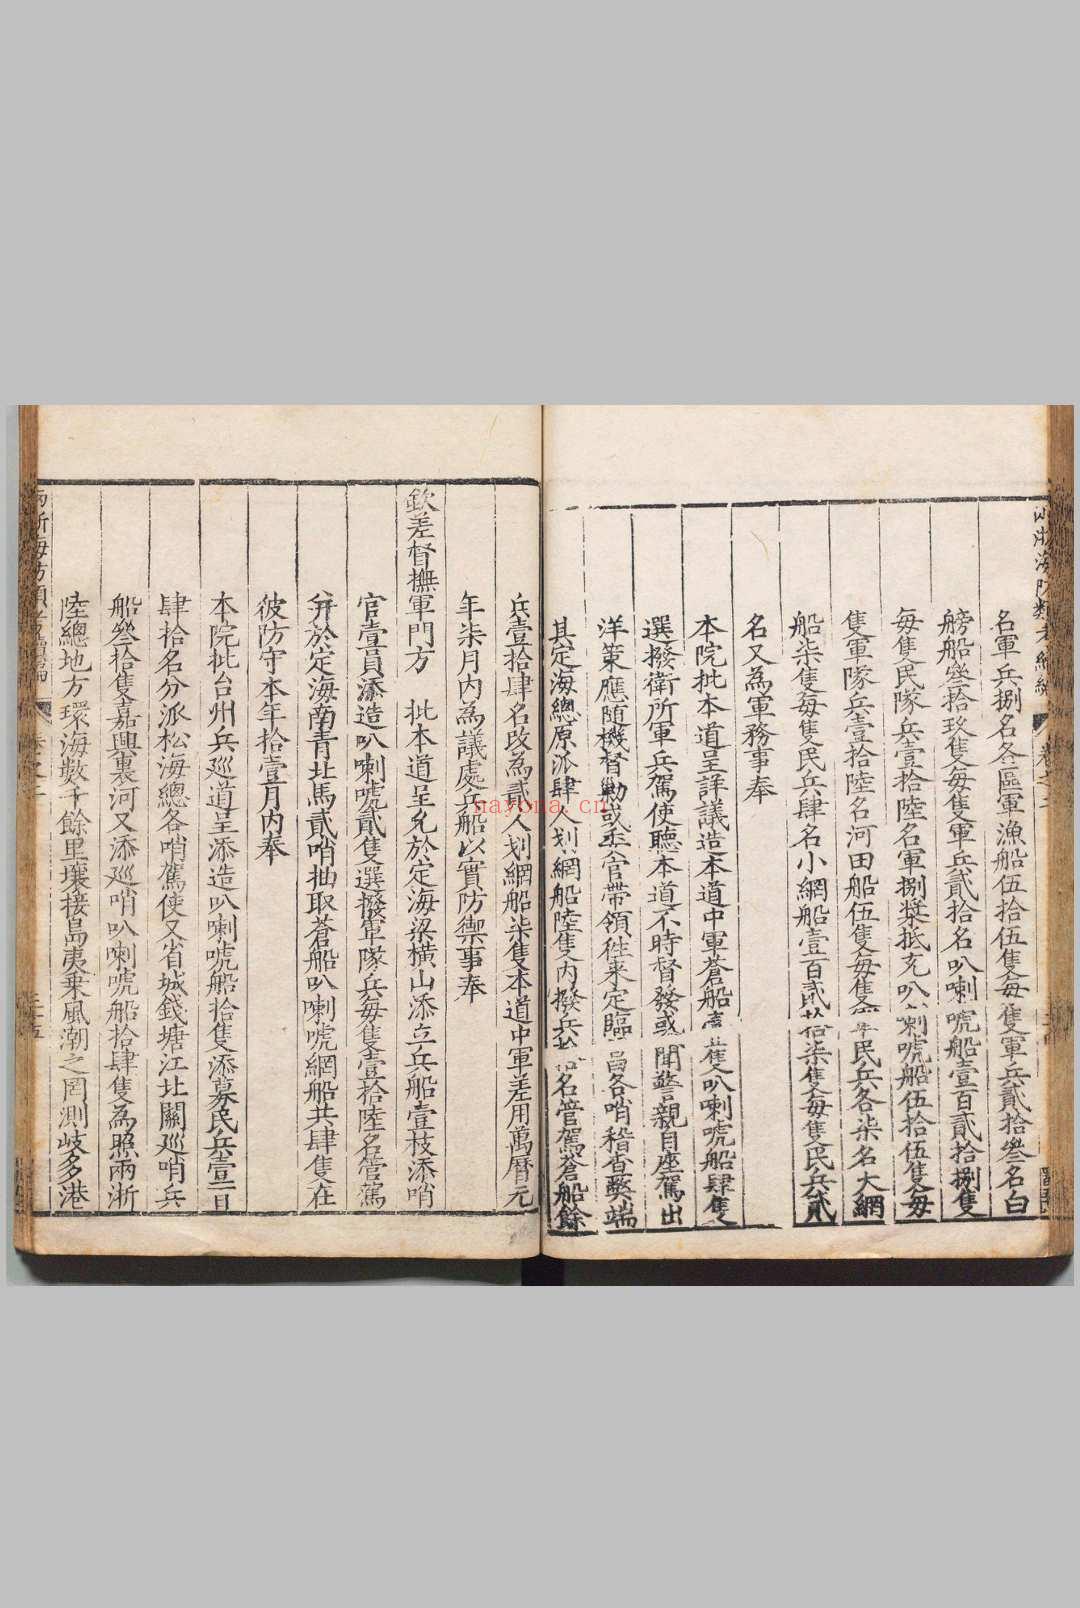 名軍兵捌名各區軍漁船伍拾伍隻每隻軍兵貳拾叄名白
艕船叄拾玖隻每隻軍兵貳拾名叭喇唬船壹百貳拾捌隻
每隻民隊兵壹拾陸名軍捌槳抵充叭喇唬船伍拾伍隻每
隻軍隊兵壹拾陸名河田船伍隻每隻軍民兵各柒名大網
船柒隻每隻民兵肆名小網船壹百貳拾柒隻每隻民兵貳
名又為軍務事奉
本院批本道呈詳議造本道中軍蒼船壹隻叭喇唬船肆隻
選撥衛所軍兵駕使聽本道不時督發或聞警親自座駕出
洋策應隨機督勦或委官帶領往來定臨昌各哨稽查獘端
其定海總原派肆人划網船陸隻內撥兵名管駕蒼船餘
兵壹拾肆名改為貳人划網船柒隻本道中軍差用萬曆元
年柒月內為議處兵船以實防禦事奉
欽差督撫軍門方 批本道呈允於定海梁橫山添立兵船壹枝添哨
官壹員添造叭喇唬貳隻選撥軍隊兵每隻壹拾陸名管駕
并於定海南青北馬貳哨抽取蒼船叭喇唬網船共肆隻在
彼防守本年拾壹月內奉
本院批台州兵巡道呈添造叭喇唬船拾隻添募民兵壹百
肆拾名分派松海總各哨駕使又省城錢塘江北關巡哨兵
船叄拾隻嘉興裏河又添巡哨叭喇唬船拾肆隻為照兩浙
陸總地方環海數千餘里壤接島夷乘風潮之罔測岐多港
兩浙海防類考續編 卷之二 三十五
nayona.cn